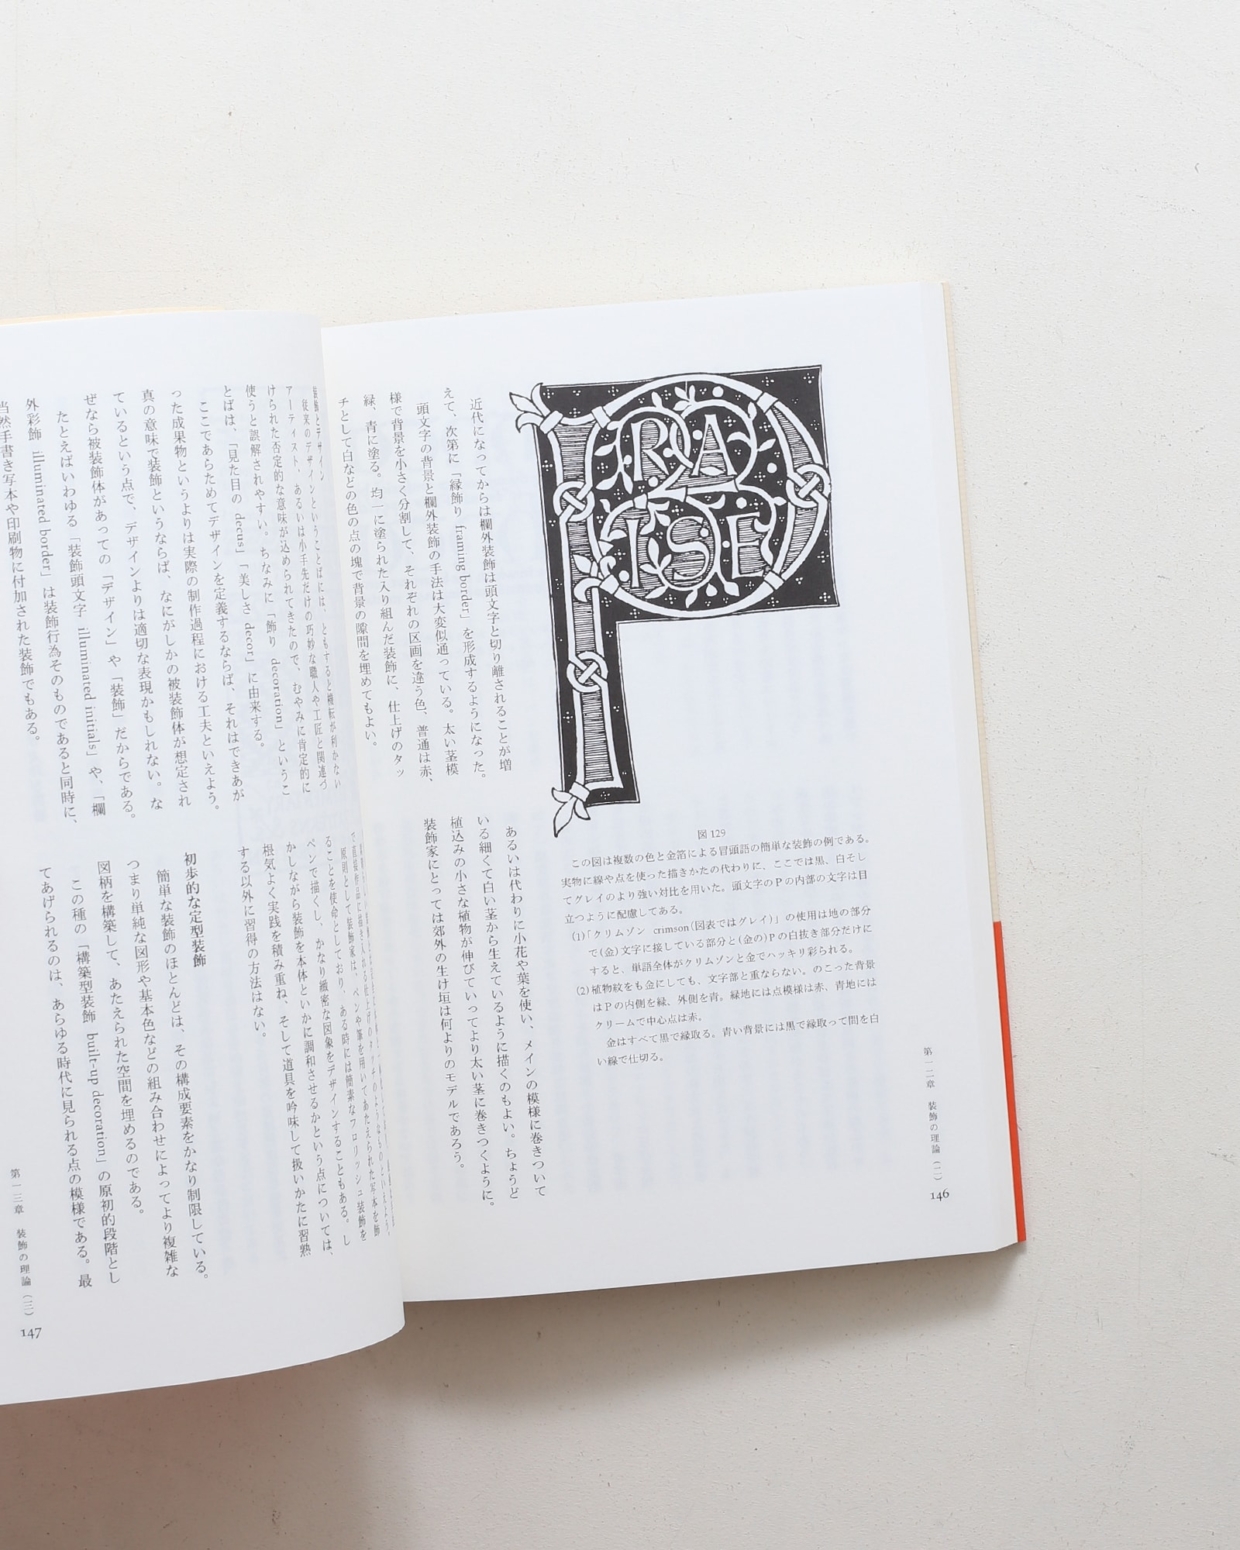 P
RA
ISE
図 129
この図は複数の色と金箔による冒頭語の簡単な装飾の例である。
実物に線や点を使った描きかたの代わりに、ここでは黒、白そし
てグレイのより強い対比を用いた。頭文字のPの内部の文字は目
立つように配慮してある。
(1)「クリムゾン crimson(図表ではグレイ)」の使用は地の部分
で(金)文字に接している部分と(金の)Pの白抜き部分だけに
すると、単語全体がクリムゾンと金でハッキリ彩られる。
(2)植物紋をも金にしても、文字部と重ならない。のこった背景
はPの内側を緑、外側を青。緑地には点模様は赤、青地には
クリームで中心点は赤。
金はすべて黒で縁取る。青い背景には黒で縁取って間を白
い線で仕切る。
近代になってからは欄外装飾は頭文字と切り離されることが増
えて、次第に「縁飾り framing border」を形成するようになった。
頭文字の背景と欄外装飾の手法は大変似通っている。太い茎模
様で背景を小さく分割して、それぞれの区画を違う色、普通は赤、
緑、青に塗る。均一に塗られた入り組んだ装飾に、仕上げのタッ
チとして白などの色の点の塊で背景の隙間を埋めてもよい。
あるいは代わりに小花や葉を使い、メインの模様に巻きついて
いる細くて白い茎から生えているように描くのもよい。ちょうど
植込みの小さな植物が伸びていってより太い茎に巻きつくように。
装飾家にとっては郊外の生け垣は何よりのモデルであろう。
第一二章 装飾の理論(二)
146
装飾とデザイン
従来のデザインということばには、ともすると機転が利かない
アーティスト、あるいは小手先だけの巧妙な職人や工匠と関連づ
けられた否定的な意味が込められてきたので、むやみに肯定的に
使うと誤解されやすい。ちなみに「飾り decoration」というこ
とばは、「見た目の decus」「美しさ decor」に由来する。
ここであらためてデザインを定義するならば、それはできあが
った成果物というよりは実際の制作過程における工夫といえよう。
真の意味で装飾というならば、なにがしかの被装飾体が想定され
ているという点で、デザインよりは適切な表現かもしれない。な
ぜなら被装飾体があっての「デザイン」や「装飾」だからである。
たとえばいわゆる「装飾頭文字 illuminated initials」や、「欄
外彩飾 illuminated border」は装飾行為そのものであると同時に、
当然手書き写本や印刷物に付加された装飾でもある。
原則として装飾家は、ペンや筆を用いてあたえられた写本を飾
ることを使命としており、ある時には簡素なフロリッシュ装飾を
ペンで描くし、かなり緻密な図象をデザインすることもある。し
かしながら装飾を本体といかに調和させるかという点については、
根気よく実践を積み重ね、そして道具を吟味して扱いかたに習熟
する以外に習得の方法はない。
初歩的な定型装飾
簡単な装飾のほとんどは、その構成要素をかなり制限している。
つまり単純な図形や基本色などの組み合わせによってより複雑な
図柄を構築して、あたえられた空間を埋めるのである。
この種の「構築型装飾 built-up decoration」の原初的段階とし
てあげられるのは、あらゆる時代に見られる点の模様である。最
第一三章 装飾の理論(三)
147